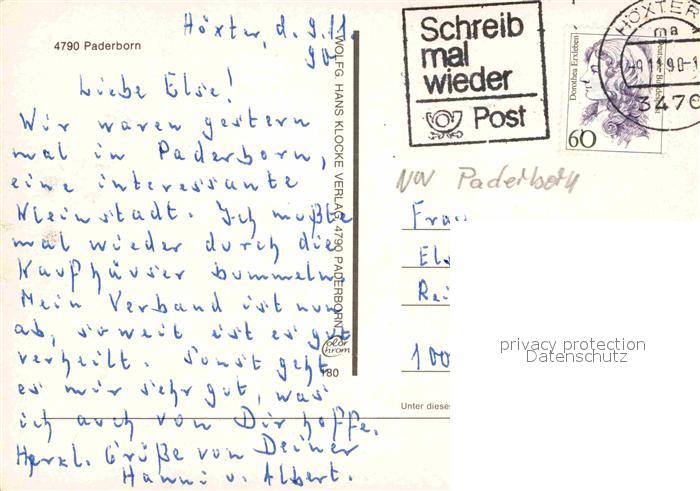 4790 Paderborn
Höxter, d. 9.11
90
Liebe Else!
Wir waren gestern
mal in Paderborn,
eine interessante
Kleinstadt. Ich mußte
mal wieder durch die
Kaufhäuser bummeln.
Mein Verband ist nun
ab, soweit ist es gut
verheilt. Sonst geht
es mir sehr gut, was
ich auch von Dir hoffe.
Herzl. Grüße von Deiner
Hanni u. Albert.
WOLFG. HANS KLOCKE VERLAG 4790 PADERBORN
color
chrom
180
Schreib
mal
wieder
Post
Dorothea Erxleben
Deutsche Bundespost
60
HÖXTER
ma
-9.11.90-1
3470
NW Paderborn
Frau
Els
Rei
100
Unter diese
privacy protection
Datenschutz